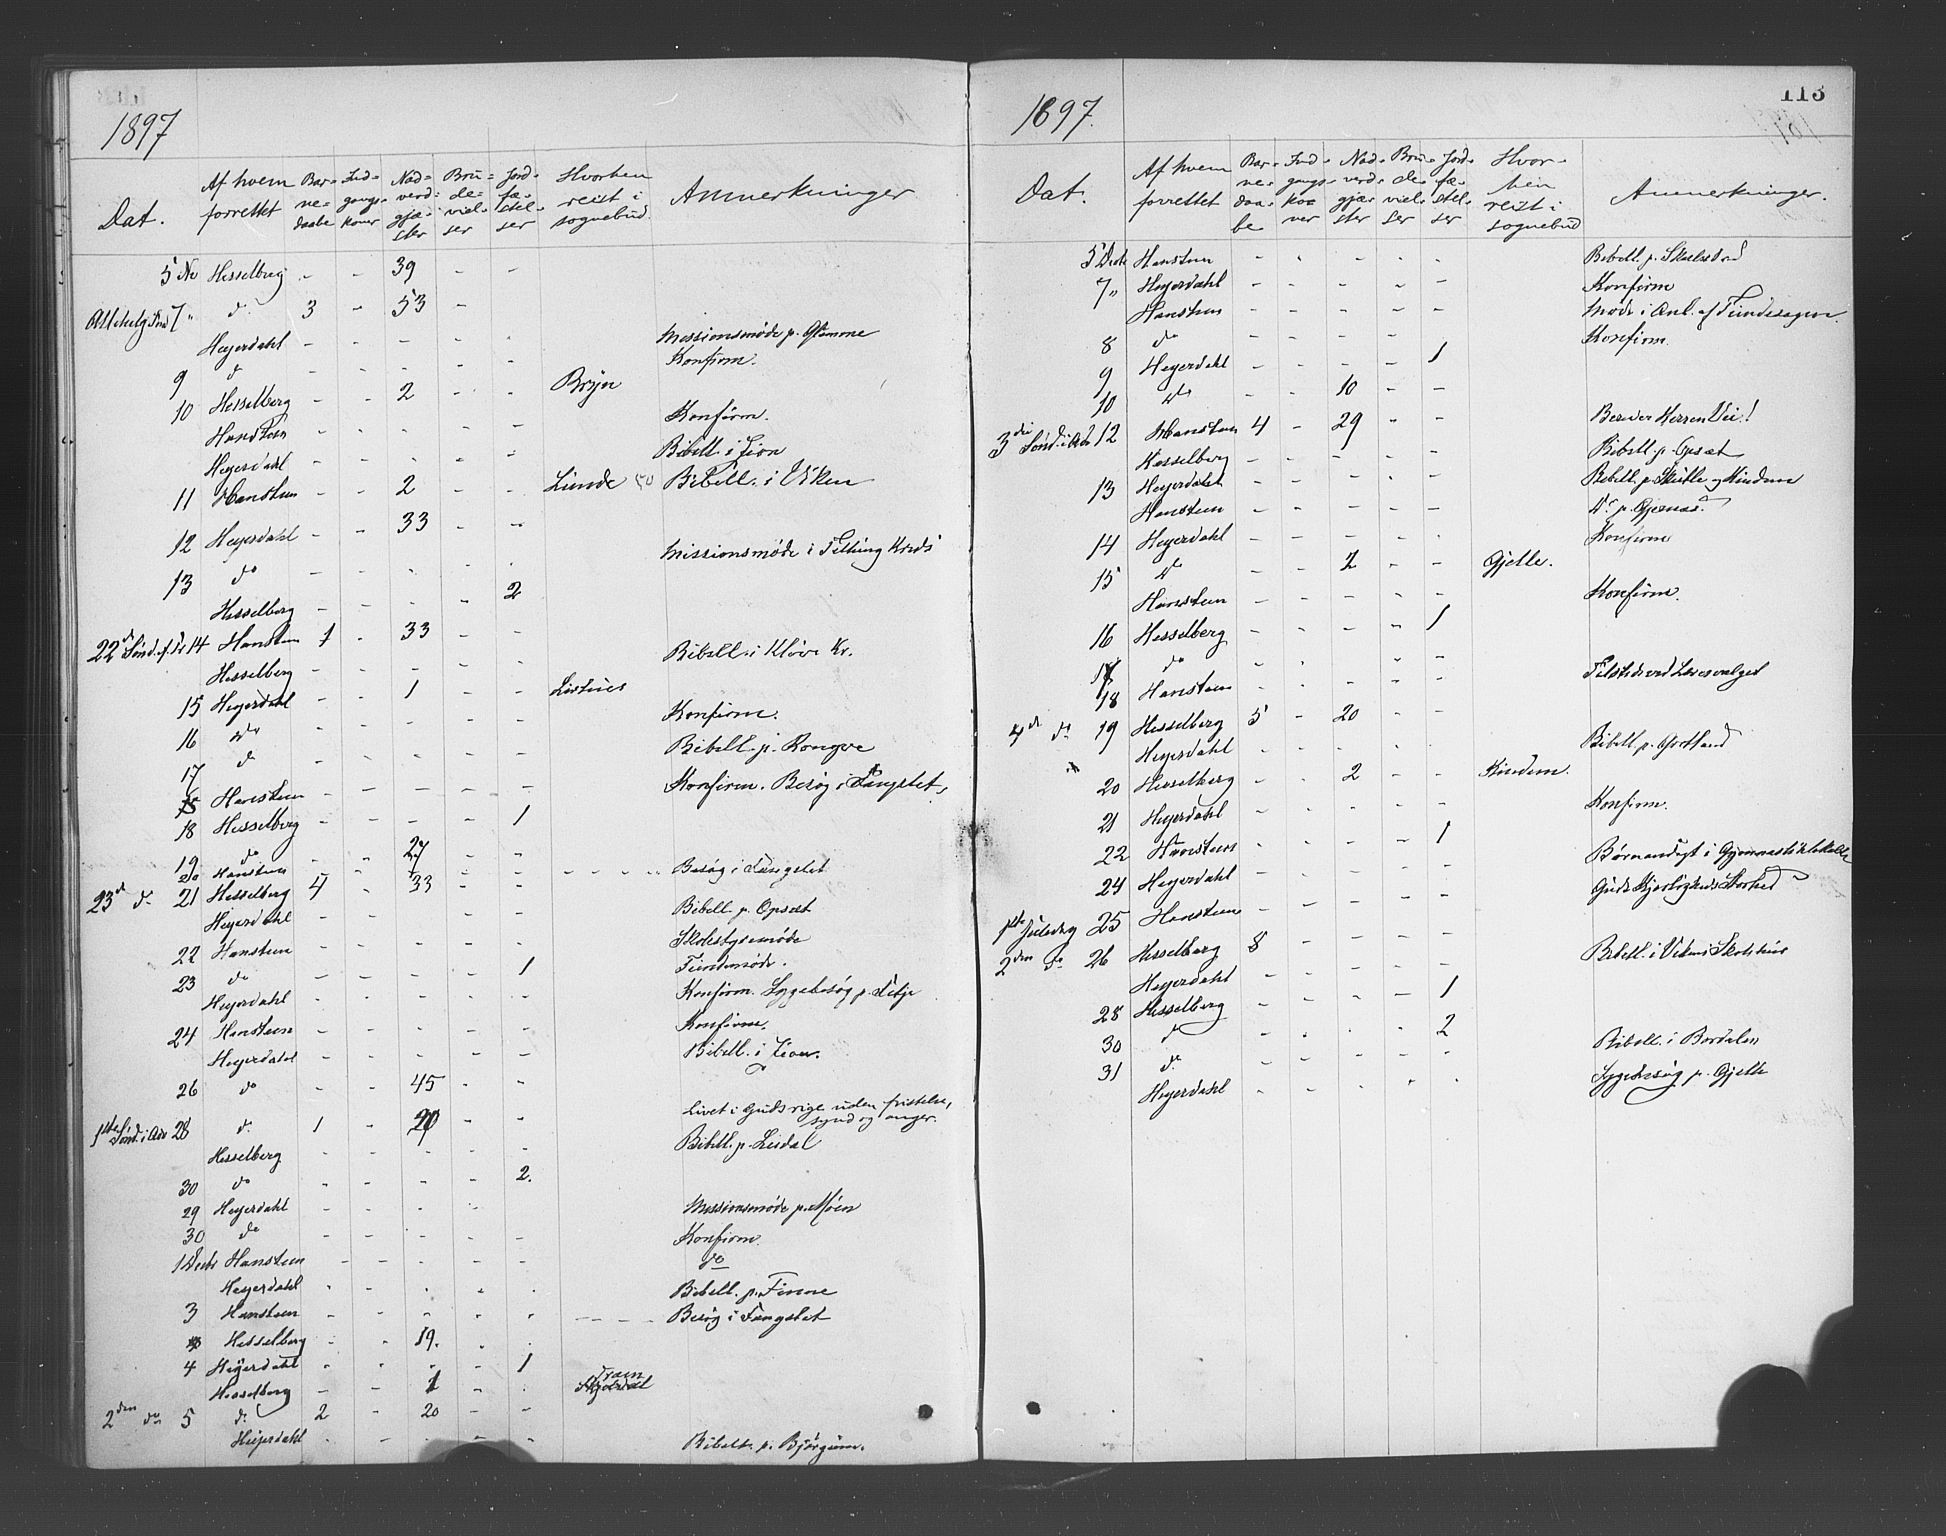 1897
Dat. Af hvem forrettet Barnedaabe Indgangskoner Nadverdgjæster Brudevielser Jordfæstelser Hvorhen reist i sognebud Anmerkninger
5 No Hesselberg - - 39 - -
Allehelg. Sønd 7 " do 3 - 53 -
Heyerdahl - - - - - Missionsmøde p. Glimme
9 do - - - - - Konfirm.
10 Hesselberg - - 2 - - Bryn
Hansteen - - - - - Konfirm.
Heyerdahl - - - - - Bibell. i Zion
11 Hansteen - - 2 - - Lunde Bibell. i Viken
12 Heyerdahl - - 33 - -
13 do - - - - - Missionsmøde i Kreds
Hesselberg - - - - 2
22d Sønd. e. Tr 14 Hansteen 1 - 33 - -
Hesselberg - - - - - Bibell. i Kløve Kr.
15 Heyerdahl - - 1 - -
16 do - - - - - Konfirm.
17 do - - - - - Bibell. p. Rongve
Hansteen - - - - - Konfirm. Besøg i Fængslet,
18 Hesselberg - - - - 1
19 do - - 27 - -
20 Hansteen - - - - - - - - - Besøg i Fængslet
23d do 21 Hesselberg 4 - 33 - -
Heyerdahl - - - - - Bibell. p. Opsæt
22 Hansteen - - - - - Skolestyremøde
23 do - - - - 1 Tiendemøde.
Heyerdahl - - - - - Konfirm. Sygebesøg p.
24 Hansteen - - - - - Konfirm.
Heyerdahl - - - - - Bibell. i Zion.
26 do - - 45 - -
1ste Sønd. i Adv 28 do 1 - 20 - - Livet i Guds rige uden fristelse,
synd og anger.
Hesselberg - - - - - Bibell. p. Leidal
30 do - - - - 2.
29 Heyerdahl - - - - Missionsmøde p. Møen
30 do - - - - - Konfirm.
1 Decbr Hansteen - - - - - do
Heyerdahl - - - - - Bibell. p. Finne
3 Hansteen - - - - - - - - Besøg i Fængslet
Hesselberg - - 19. - .
4 Heyerdahl - - - - 1
Hesselberg - - 1 - .
2den do 5 do 2 - 20 - -
Heyerdahl - - - - - Bibell. p. Bjørgum.
113
1897.
Dat. Af hvem forrettet Barnedaabe Indgangskoner Nadverdgjæster Brudevielser Jordfæstelser Hvorhen reist i sognebud Anmerkninger.
5 Decbr Hansteen - - - - - Bibell. p.
7 " Heyerdahl - - - - - Konfirm
Hansteen - - - - - Møde i Anl. af Tiendesagen.
8 do - - - - Konfirm.
9 Heyerdahl - - - - 1
10 do - - 10 - -
3die Sønd. i Adv 12 Hansteen 4 - 29 - - Bereder Herren Vei!
Hesselberg - - - - - Bibell. p. Opsæt
13 Heyerdahl - - - - - Bibell. p. Skutle og Kindem
Hansteen - - - - - do p. Gjernæs.
14 Heyerdahl - - - - - Konfirm
15 do - - 2 - - Gjelle.
Hansteen - - - - - Konfirm.
16 Hesselberg - - - - 1
17 do - - - -
18 Hansteen - - - - - Tilstede ved
4d do 19 Hesselberg 5 - 20 - -
Heyerdahl - - - - - Bibell. p. Grotland
20 Hesselberg - - 2 - - Kindem.
21 Heyerdahl - - - - - Konfirm.
22 Hansteen - - - - 1
24 Heyerdahl - - - - - Børneandagt i Gymnastiklokalet
1ste Juledag 25 Hansteen - - - - - Guds Kjærligheds Storhed
2den do 26 Hesselberg 8 - - - -
Heyerdahl - - - - - Bibell. i Vikens Skolehus
28 Hesselberg - - - - 1
30 do - - - - 2
31 do - - - - - Bibell. i Bordalen
Heyerdahl - - - - - Sygebesøg p. Gjelle